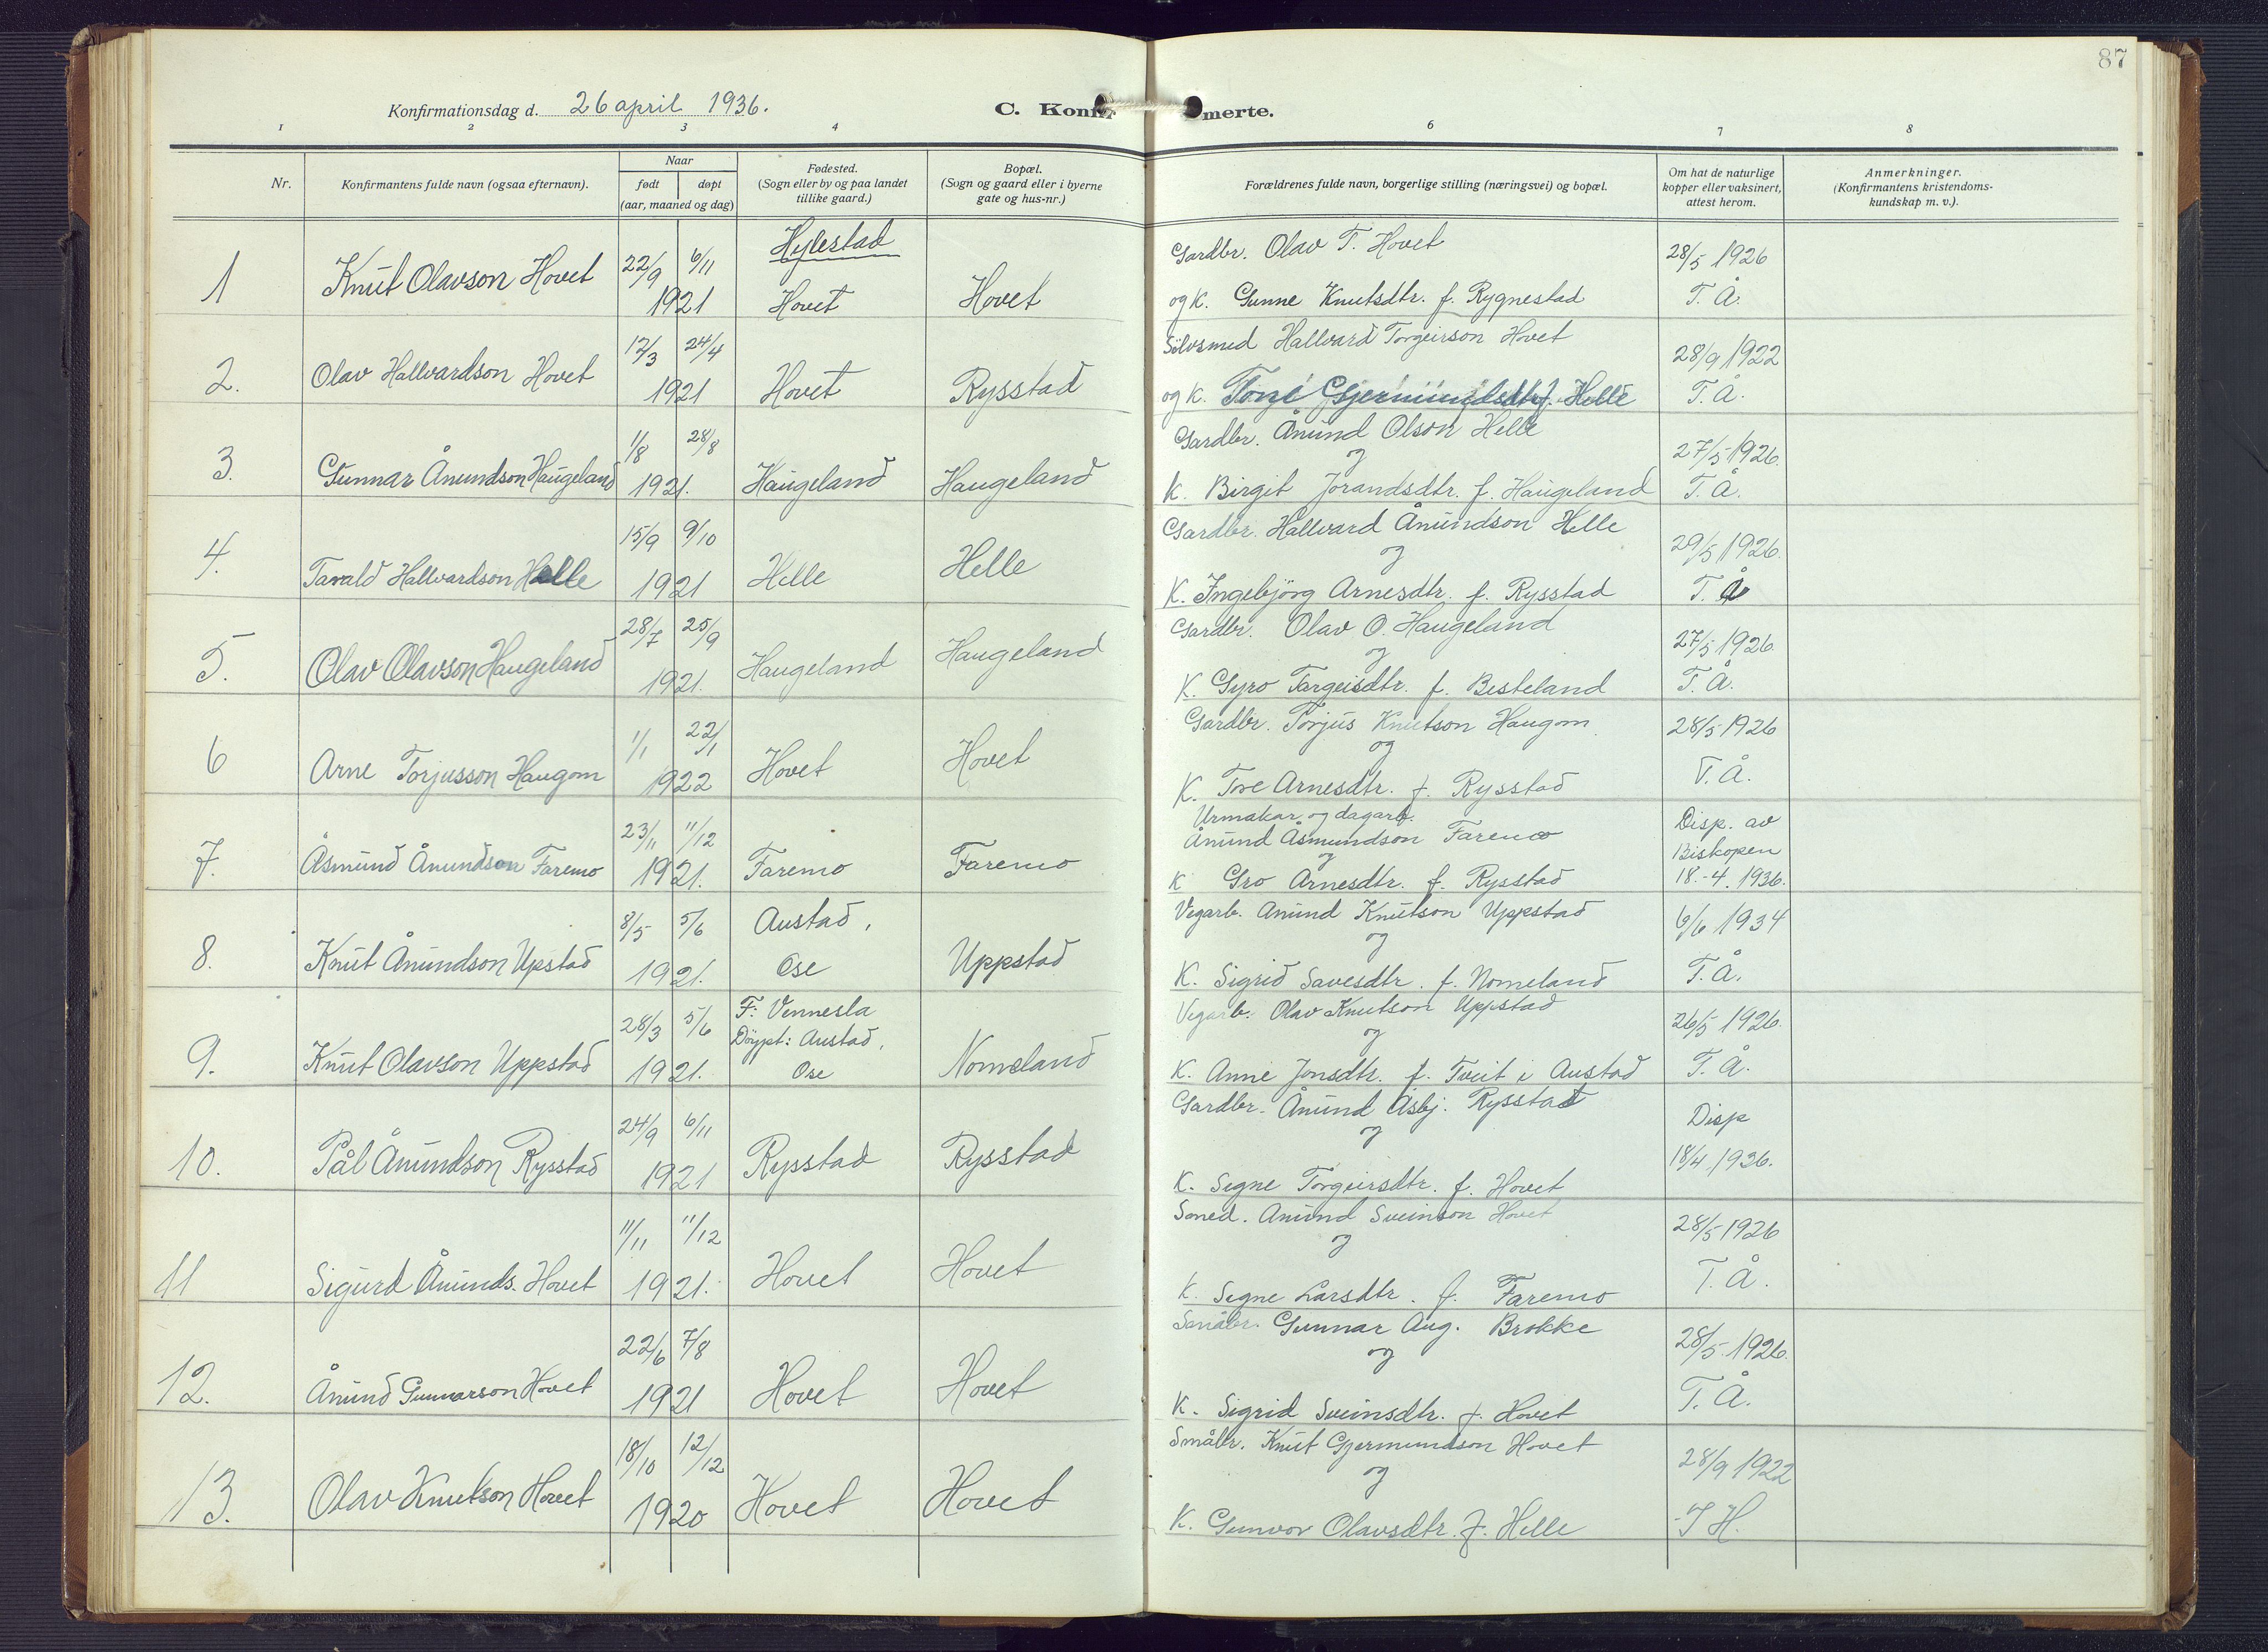 87
Konfirmationsdag d. 26 april 1936.
C. Konfirmerte.
1 2 3 4 6 7 8
Nr.
Konfirmantens fulde navn (ogsaa efternavn).
Naar
født døpt
(aar, maaned og dag)
Fødested.
(Sogn eller by og paa landet
tillike gaard.)
Bopæl.
(Sogn og gaard eller i byerne
gate og hus-nr.)
Forældrenes fulde navn, borgerlige stilling (næringsvei) og bopæl.
Om hat de naturlige
kopper eller vaksinert,
attest herom.
Anmerkninger.
(Konfirmantens kristendoms-
kundskap m. v.).
Hylestad
1 Knut Olavson Hovet 22/9 6/11 1921 Hovet Hovet
Gardbr. Olav T. Hovet
og K. Gunne Knutsdtr. f. Rygnestad
28/5 1926
T. Å.
2. Olav Hallvardson Hovet 12/3 24/4 1921 Hovet Rysstad
Sylvsmed Hallvard Torgeirson Hovet
og K. Tone Gjermundsdtr f. Helle
28/9 1922
T. Å.
3. Gunnar Ånundson Haugeland 1/8 28/8 1921. Haugeland Haugeland
Gardbr. Ånund Olson Helle
og
K. Birgit Jorandsdtr. f. Haugeland
27/5 1926.
T. Å.
4. Tarald Hallvardson Helle 15/9 9/10 1921 Helle Helle
Gardbr. Hallvard Ånundson Helle
og
K. Ingebjörg Arnesdtr. f. Rysstad
29/5 1926.
T. Å
5. Olav Olavson Haugeland 28/7 25/9 1921. Haugeland Haugeland
Gardbr. Olav O. Haugeland
og
K. Gyro Targeisdtr. f. Besteland
27/5 1926.
T. Å.
6 Arne Torjusson Haugom 1/1 22/1 1922 Hovet Hovet
Gardbr. Torjus Knutson Haugom
og
K. Tore Arnesdtr. f. Rysstad
28/5 1926
T. Å.
7. Åsmund Ånundson Faremo 23/11 11/12 1921. Faremo Faremo
Urmakar og dagarb.
Ånund Åsmundson Faremo
og
K Gro Arnesdtr. f. Rysstad
Disp. av
Biskopen
18.-4. 1936.
8. Knut Ånundson Upstad 8/5 5/6 1921. Austad, Ose Uppstad
Vegarb. Anund Knutson Uppstad
og
K. Sigrid Savesdtr. f. Nomeland
6/6 1934
T. Å.
9. Knut Olavson Uppstad 28/3 5/6 1921. F: Vennesla Döypt: Austad, Ose Nomeland
Vegarb. Olav Knutson Uppstad
og
K. Anne Jonsdtr. f. Tveit i Austad
26/5 1926.
T. Å.
10. Pål Ånundson Rysstad 24/9 6/11 1921 Rysstad Rysstad
Gardbr. Ånund Åsbj. Rysstad
og
K. Segne Torgeirsdtr. f. Hovet
Disp
18/4 1936.
11 Sigurd Ånunds. Hovet 11/11 11/12 1921. Hovet Hovet
Smed. Anund Sveinson Hovet
og
K. Segne Larsdtr. f. Faremo
28/5 1926
T. Å.
12. Ånund Gunnarson Hovet 22/6 7/8 1921 Hovet Hovet
Småbr. Gunnar Aug. Brokke
og
K. Sigrid Sveinsdtr. f. Hovet
28/5. 1926.
T. Å.
13. Olav Knutson Hovet 18/10 12/12 1920 Hovet Hovet
Småbr. Knut Gjermundson Hovet
og
K. Gunvor Olavsdtr. f. Helle
28/9 1922
T H.